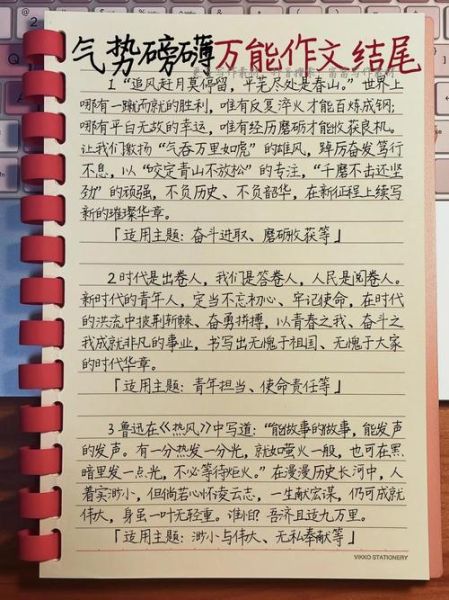 气势磅礴万能作文结尾
1 “追风赶月莫停留，平芜尽处是春山。”世界上
哪有一蹴而就的胜利，唯有反复淬火才能百炼成钢；
哪有平白无故的幸运，唯有经历磨砺才能收获良机。
让我们激扬“气吞万里如虎”的雄风，踔厉奋发笃行
不息，以“咬定青山不放松”的专注，“千磨万击还坚
劲”的顽强，不负历史、不负韶华，在新征程上续写
新的璀璨华章。
「适用主题：奋斗进取、磨砺收获等」
2 时代是出卷人，我们是答卷人，人民是阅卷人。
新时代的青年人，定当不忘初心、牢记使命，在时代
的洪流中披荆斩棘、奋勇拼搏，以青春之我、奋斗之
我成就非凡的事业，书写出无愧于祖国、无愧于大家
的时代华章。
「适用主题：青年担当、使命责任等」
3 鲁迅在《热风》中写道：“能做事的做事，能发声
的发声。有一分热发一分光，就如萤火一般，也可在黑
暗里发一点光，不必等待炬火。”在漫漫历史长河中，人
着实渺小，但倘若心怀凌云志，一生献宏谋，仍可成就
伟大，身虽一叶无轻重。谁怕？吾济且这九万里。
「适用主题：渺小与伟大、无私奉献等」
VIKKO STATIONERY